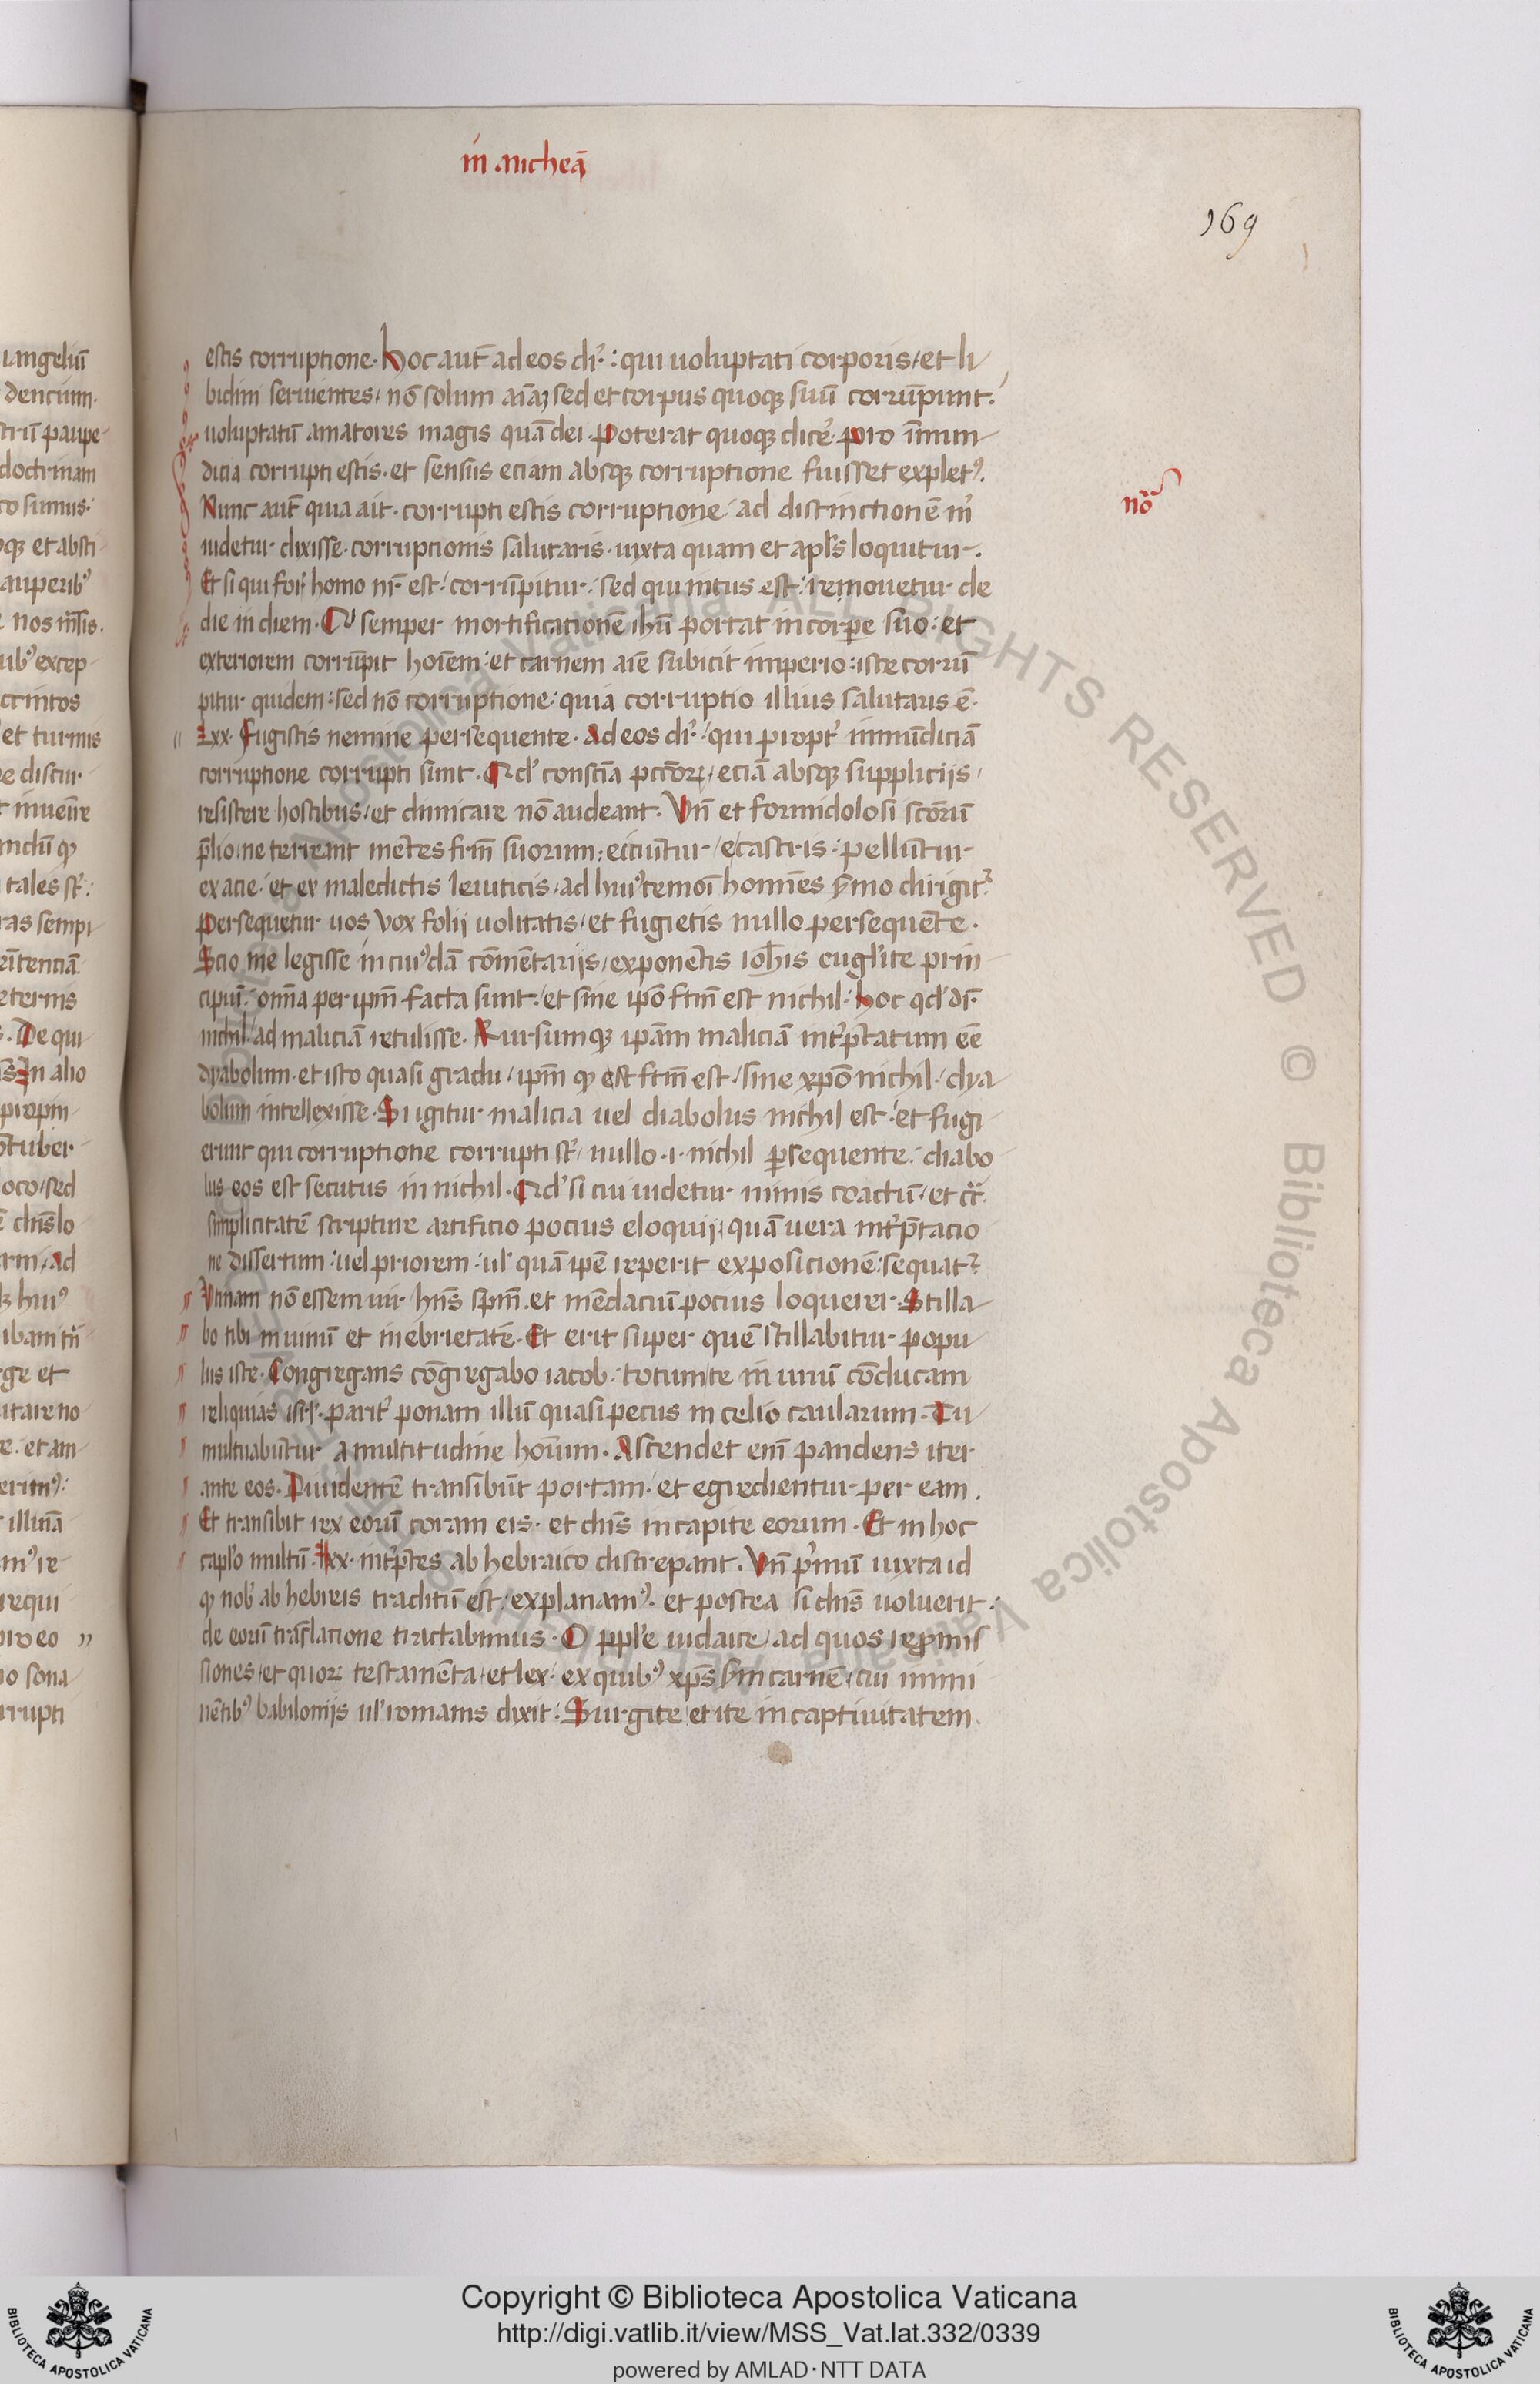 in micheā
169
estis corruptione. hoc aut̄ ad eos dr̄. qui uoluptati corporis / et li
bidini seruientes / nō solum aīaꝫ sed et corpus quoqꝫ suū corrūpunt.
uoluptatū amatores magis quā dei. poterat quoqꝫ dicē. pro īmun
dicia corrupti estis. et sensus eciam absqꝫ corruptione fuisset explet᾽.
Nunc aut̄ quia ait. corrupti estis corruptione / ad distinctionē
nō
uidetur dixisse. corruptionis salutaris. iuxta quam et apl̄s loquitur.
Et si qui for̄ homo nr̄ est / corrūpitur / sed qui intus est / remouetur de
die in diem. semper mortificationē ihū portat in corꝑe suo. et
exteriorem corrūpit hoīem. et carnem aīe subicit imperio. iste corrū
pitur quidem. sed nō corruptione. quia corruptio illius salutaris ē.
Lxx. Fugistis nemine persequente. Ad eos dr̄. qui propt᾽ īmūdiciā
corruptione corrupti sunt. Qd᾽ consciā pctōꝝ / eciā absqꝫ supplicijs /
resistere hostibus / et dimicare nō audeant. Vn̄ et formidolosi scōrū
p̄lio. ne terreant mētes frm̄ suorum. eiciūtur / e castris. pellūtur
ex acie. et ex maledictis leuiticis / ad hui᾽cemōi homīes ẜmo dirigit᾽
Persequetur uos vox folij uolitātis / et fugietis nullo persequēte.
Scio me legisse in cui᾽dā cōmētarijs / exponētis Ioh̄is euḡl'ite prin
cipiū. omīa per ipm̄ facta sunt. et sine ip̄o ftm̄ est nichil. hoc qd᾽ dr̄
nichil / ad maliciā retulisse. Rursumqꝫ ipām maliciā int᾽p̄tatum eē
dyabolum. et isto quasi gradu / ipm̄ qꝫ est ftm̄ est / sine xp̄o nichil / dya
bolum intellexisse. Si igitur malicia uel diabolus nichil est. et fugi
erunt qui corruptione corrupti st̄ / nullo .i. nichil ꝑsequente. diabo
lus eos est secutus in nichil. Qd᾽ si cui uidetur nimis coactū / et
simplicitatē scripture artificio pocius eloquij / quā uera int᾽p̄tacio
ne dissertum. uel priorem. ul᾽ quā ip̄e reperit exposicionē. sequat᾽
Vtinam nō essem uir hn̄s sp̄m. et mēdaciū pocius loquerer. Stilla
bo tibi in uinū et in ebrietatē. Et erit super quē stillabitur popu
lus iste. Congregans cōgregabo iacob. totum te in unū cōducam
reliquias isrl᾽. parit᾽ ponam illū quasi pecus in celio caularum. Tu
multuabūtur a multitudine hoīum. Ascendet enī pandens iter
ante eos. Diuidentē transibūt portam. et egredientur per eam.
Et transibit rex eorū coram eis. et dn̄s in capite eorum. Et in hoc
capl᾽o multū .Lxx. int᾽p̄tes ab hebraico discrepant. Vn̄ p᾽mū iuxta id
qꝫ nob᾽ ab hebreis traditū est / explanam᾽. et postea si dn̄s uoluerit.
de eorū trāslacione tractabimus. O ppl᾽e iudaice / ad quos
siones / et quoꝝ testamēta / et lex. ex quib᾽ xp̄s ẜm carnē / cui immi
nētib᾽ babilonijs ul᾽ romanis dixit. Surgite et ite in captiuitatem.
Copyright © Biblioteca Apostolica Vaticana
http://digi.vatlib.it/view/MSS_Vat.lat.332/0339
powered by AMLAD · NTT DATA